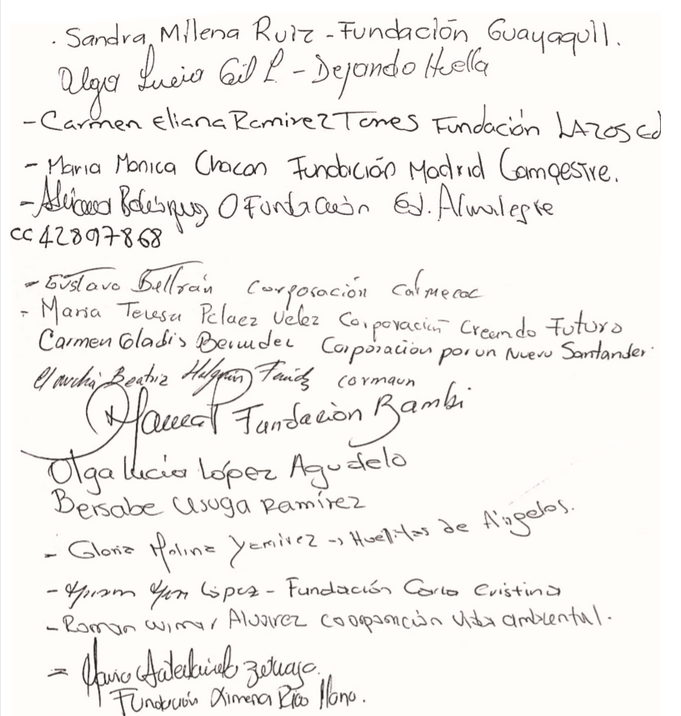 . Sandra Milena Ruiz - Fundación Guayaquil.
Olga Lucia Gil L - Dejando Huella
- Carmen Eliana Ramirez Torres Fundación LAZOS Cd
- Maria Monica Chacon Fundación Madrid Campestre.
- O Fundación Ed. Almalegre
CC 42897868
- Gustavo Beltrán Corporación Calmecac
- Maria Teresa Pelaez Velez Corporación Creando Futuro
Carmen Gladis Bermudez Corporacion por un Nuevo Santander.
Claudia Beatriz Holguin
Fundación Bambi
Olga Lucia López Agudelo
Bersabe Usuga Ramírez
- Gloria Molina Yamirez -> Huellitas de Angelos.
- López - Fundación Carla Cristina
- Roman Wimar Alvarez Coopoanción Vida ambiental.
-
Fundación Ximena Rico Llano.